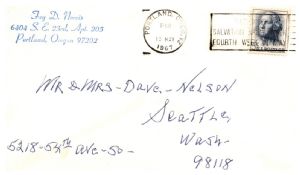 Fay D. Norris
6404 S. E. 23rd, Apt. 205
Portland, Oregon 97202
PORTLAND, OREG.
PM
1967
SALVATION
FOURTH WEEK
MR & MRS - Dave - Nelson
Seattle
Wash -
5218 - 54th ave - SO -
98118